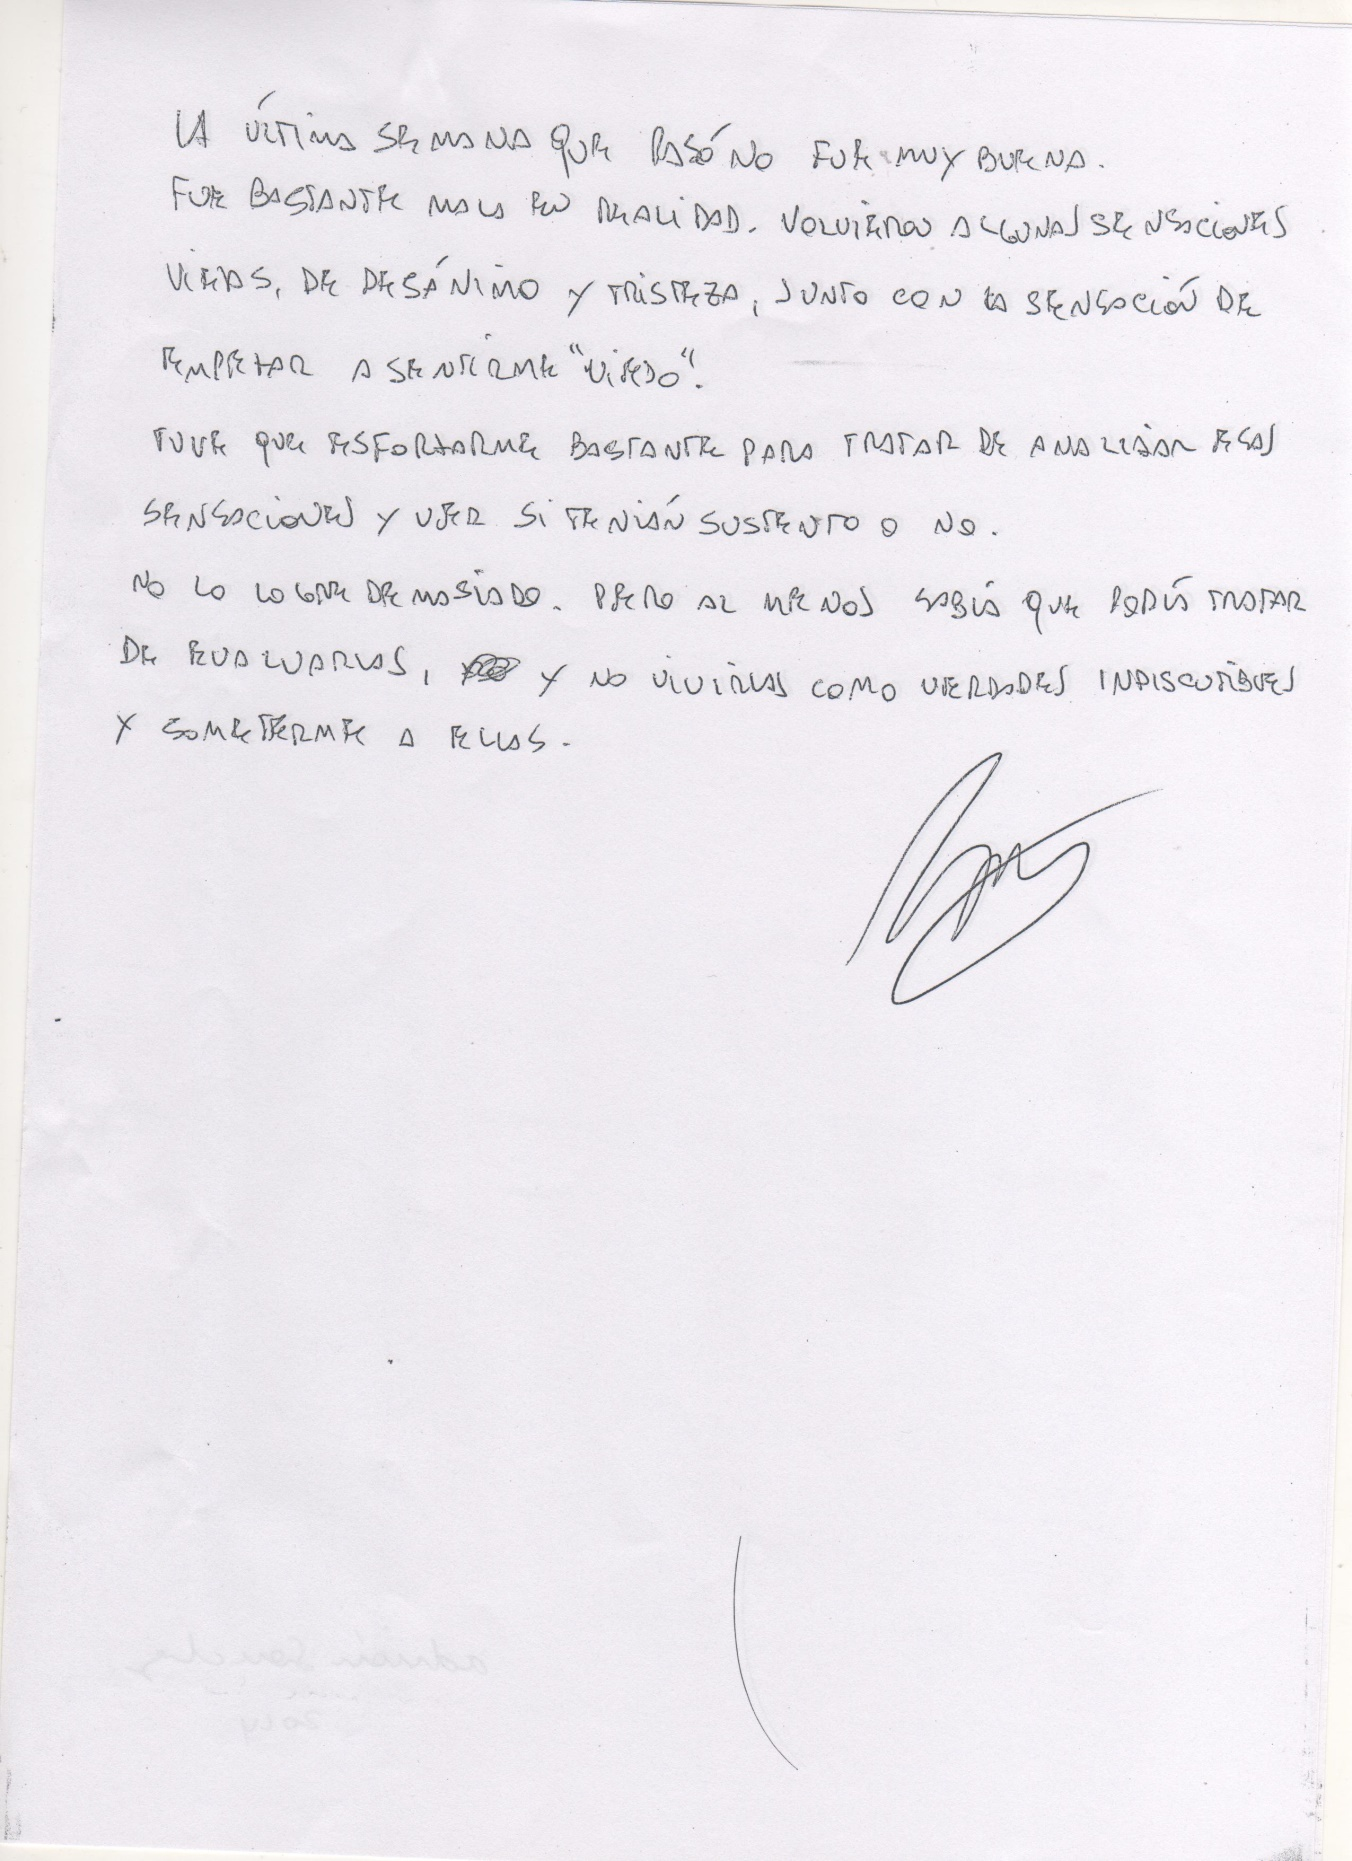 LA ÚLTIMA SEMANA QUE PASÓ NO FUE MUY BUENA.
FUE BASTANTE MALA EN REALIDAD. VOLVIERON ALGUNAS SENSACIONES
VIEJAS, DE DESÁNIMO Y TRISTEZA, JUNTO CON LA SENSACIÓN DE
EMPEZAR A SENTIRME "VIEJO".
TUVE QUE ESFORZARME BASTANTE PARA TRATAR DE ANALIZAR ESAS
SENSACIONES Y VER SI TENIÁN SUSTENTO O NO.
NO LO LOGRE DEMASIADO. PERO AL MENOS SABÍA QUE PODÍA TRATAR
DE EVALUARLAS, Y NO VIVIRLAS COMO VERDADES INDISCUTIBLES
Y SOMETERME A ELLAS.